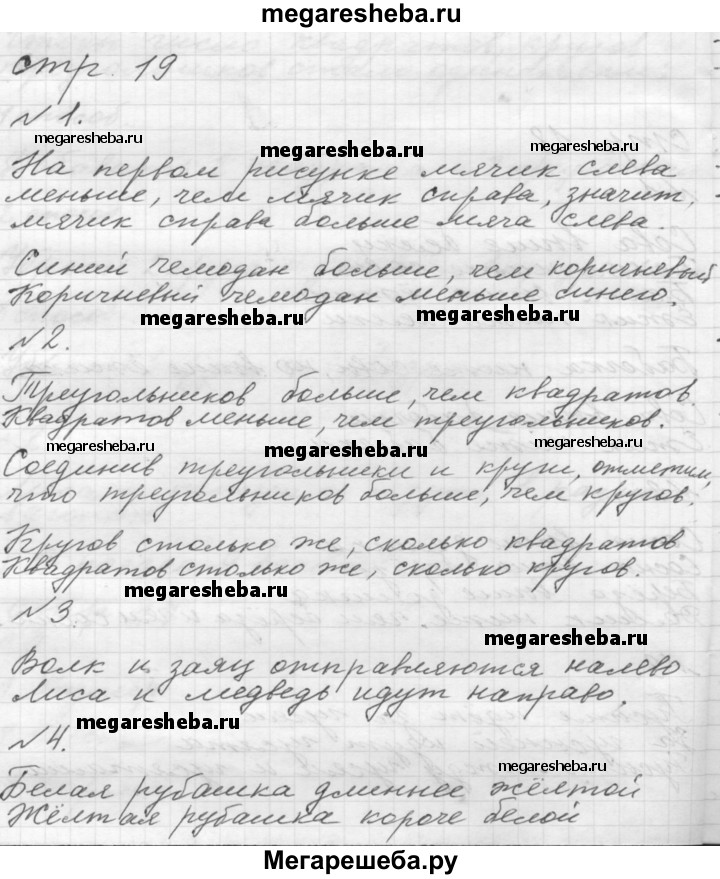 megaresheba.ru
стр. 19
№1.
megaresheba.ru
megaresheba.ru
megaresheba.ru
На первом рисунке мячик слева
меньше, чем мячик справа, значит,
мячик справа больше мяча слева.
Синий чемодан больше, чем коричневый
Коричневый чемодан меньше синего.
megaresheba.ru
megaresheba.ru
№2.
Треугольников больше, чем квадратов.
Квадратов меньше, чем треугольников.
megaresheba.ru
megaresheba.ru
megaresheba.ru
Соединив треугольники и круги, отметим,
что треугольников больше, чем кругов.
Кругов столько же, сколько квадратов
Квадратов столько же, сколько кругов.
megaresheba.ru
№3.
megaresheba.ru
Волк и заяц отправляются налево
Лиса и медведь идут направо.
megaresheba.ru
№4.
megaresheba.ru
Белая рубашка длиннее жёлтой
Жёлтая рубашка короче белой
Мегарешеба.ру